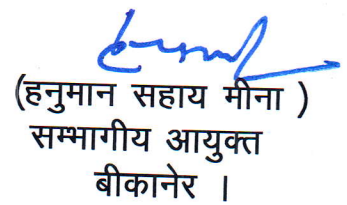 (हनुमान सहाय मीना )
सम्भागीय आयुक्त
बीकानेर ।